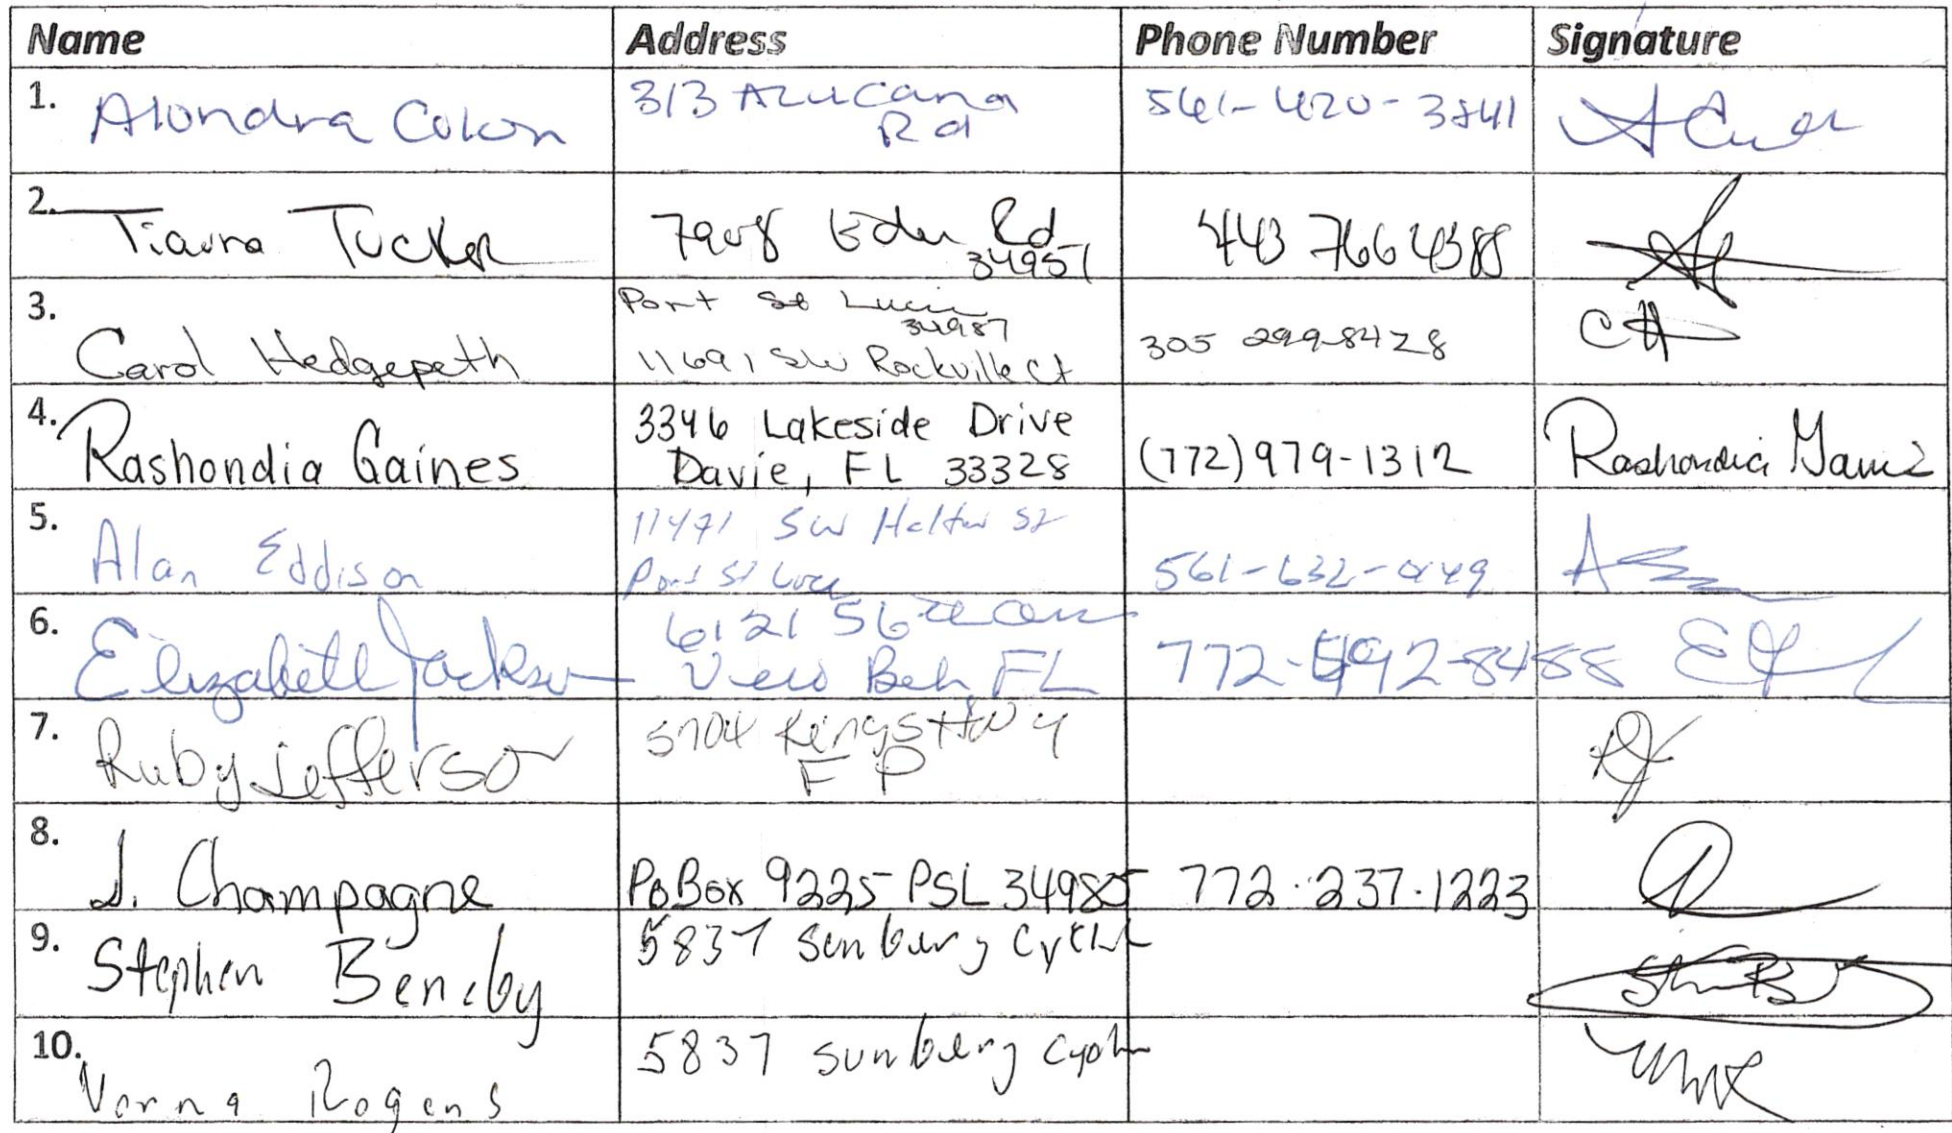 Name Address Phone Number Signature
1. Alondra Colon 313 Azucana Rd 561-420-3841
2. Tiavna Tucker 7908 Eden Rd 34951 443 766 4388
3. Carol Hedgepeth Port St Lucie 34987 11691 SW Rockville Ct 305 299-8428 CH
4. Rashondia Gaines 3346 Lakeside Drive Davie, FL 33328 (772) 979-1312 Rashondia Gaines
5. Alan Eddison 11471 SW Halton St Port St Luce 561-632-0449
6. Elizabeth Jackson 6121 56 Vero Bch, FL 772-592-8488 EJ
7. Ruby Jefferson 5704 Kings Hwy F P RJ
8. J. Champagne PoBox 9225 PSL 34985 772.237.1223
9. Stephen Beneby 5837 Sunburg
10. Verna Rogens 5837 Sunberg